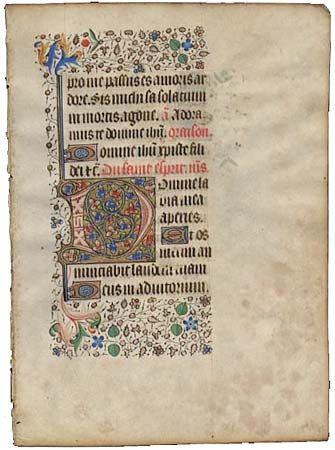 pro me passus es amoris ar
dore. Sis michi sa solatium
in mortis agone. A Adora
mus te domine ihu. Oreison.
Domine ihu xpiste fili
dei &c. Du saint esperit. m̃s.
Domine la
bia mea
aperies.
Et os
meum an
nunciabit laudem tuam
Deus in adiutorium.